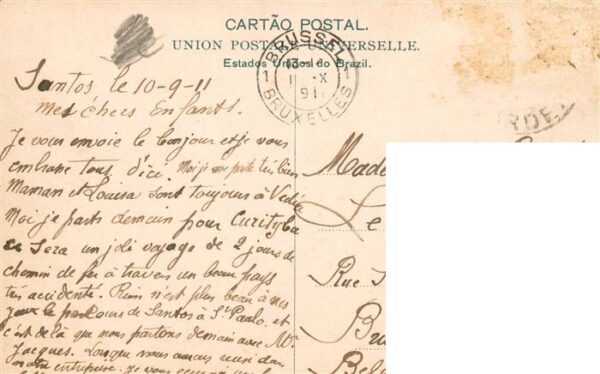 CARTÃO POSTAL.
UNION POSTALE UNIVERSELLE.
Estados Unidos do Brazil.
BRUSSEL
1 13- 1
X
91
BRUXELLES
Santos le 10-9-11
Mes chers Enfants.
Je vous envoie le bonjour et je vous
embrasse tous d'ici. Moi je me porte très bien
Maman et Louisa sont toujours à
Moi je parts demain pour Curityba
ce sera un joli voyage de 2 jours de
chemin de fer à travers un beau pays
très accidenté. Rien n'est plus beau à mes
yeux le parcours de Santos à St Paulo, et
c'est de là que nous partons demain avec Mr
Jacques. Lorsque nous aurons reussi dans
notre entreprise je vous
Made
Le
Rue
Bru
Bel